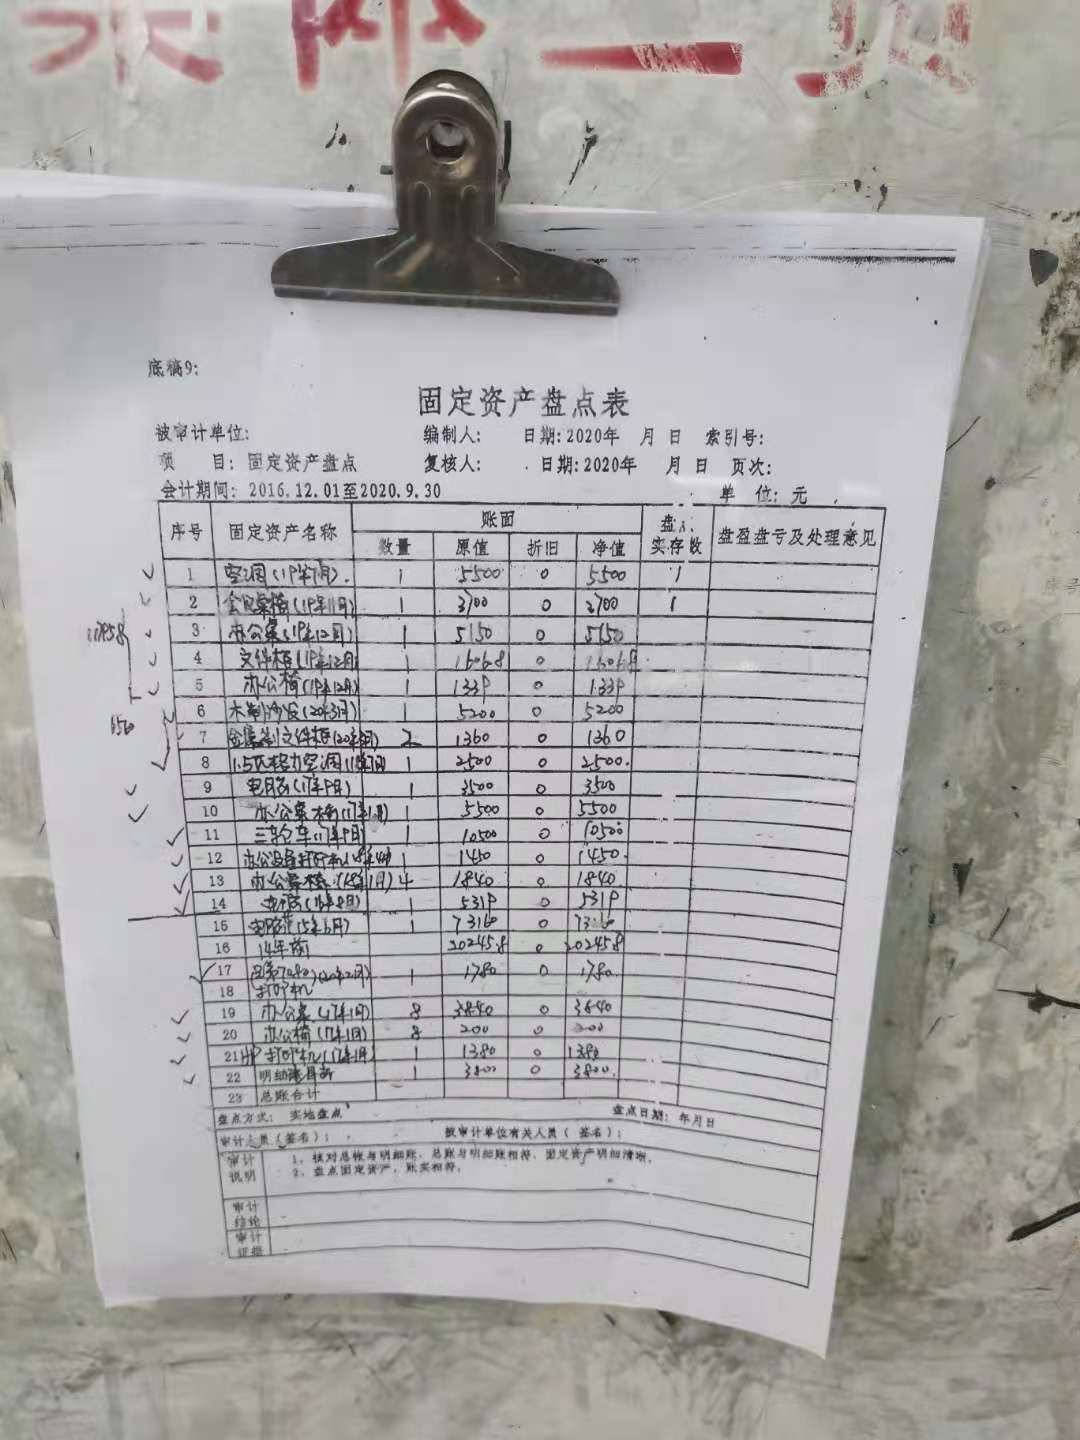 底稿9:
固定资产盘点表
被审计单位: 编制人: 日期:2020年 月 日 索引号:
项 目: 固定资产盘点 复核人: 日期:2020年 月 日 页次:
会计期间: 2016.12.01至2020.9.30 单 位: 元
序号 固定资产名称 账面 盘点实存数 盘盈盘亏及处理意见
数量 原值 折旧 净值
1 空调(19年7月). 1 5500 0 5500 1
2 会议桌椅(19年11月) 1 3700 0 3700 1
3 办公桌(19年12月) 1 5150 0 5150
4 文件柜(19年12月 1 16068 0 16068
5 办公椅(19年12月) 1 1339 0 1339
6 木制沙发(20年3月) 1 5200 0 5200
7 金属制文件柜(20年月) 2 1360 0 1360
8 1.5匹格力空调 1 2500 0 2500.
9 电脑(17年9月) 1 3500 0 3500
10 办公桌椅(17年1月) 1 5500 0 5500
11 三轮车(17年9月) 1 10500 0 10500
12 办公设备打印机(18年4月 1 1450 0 1450.
13 办公桌椅(18年1月) 4 1840 0 1840.
14 电脑 1 5319 0 5319
15 (15年6月) 1 7316 0 7316
16 14年前 202458 0 202458
17 (20年2月) 1 1780 0 1780.
18 打印机
19 办公桌(17年1月) 8 3840 0 3840
20 办公椅(17年1月) 8 200 0 200
21 HP打印机(17年1月 1 1380 0 1380
22 明细账 1 3800 0 3800.
23 总账合计
盘点方式: 实地盘点 盘点日期: 年月日
审计人员(签名): 被审计单位有关人员( 签名):
审计说明 1、核对总帐与明细账、总账与明细账相符、固定资产明细清晰。
2、盘点固定资产,账实相符。
审计结论
审计证据